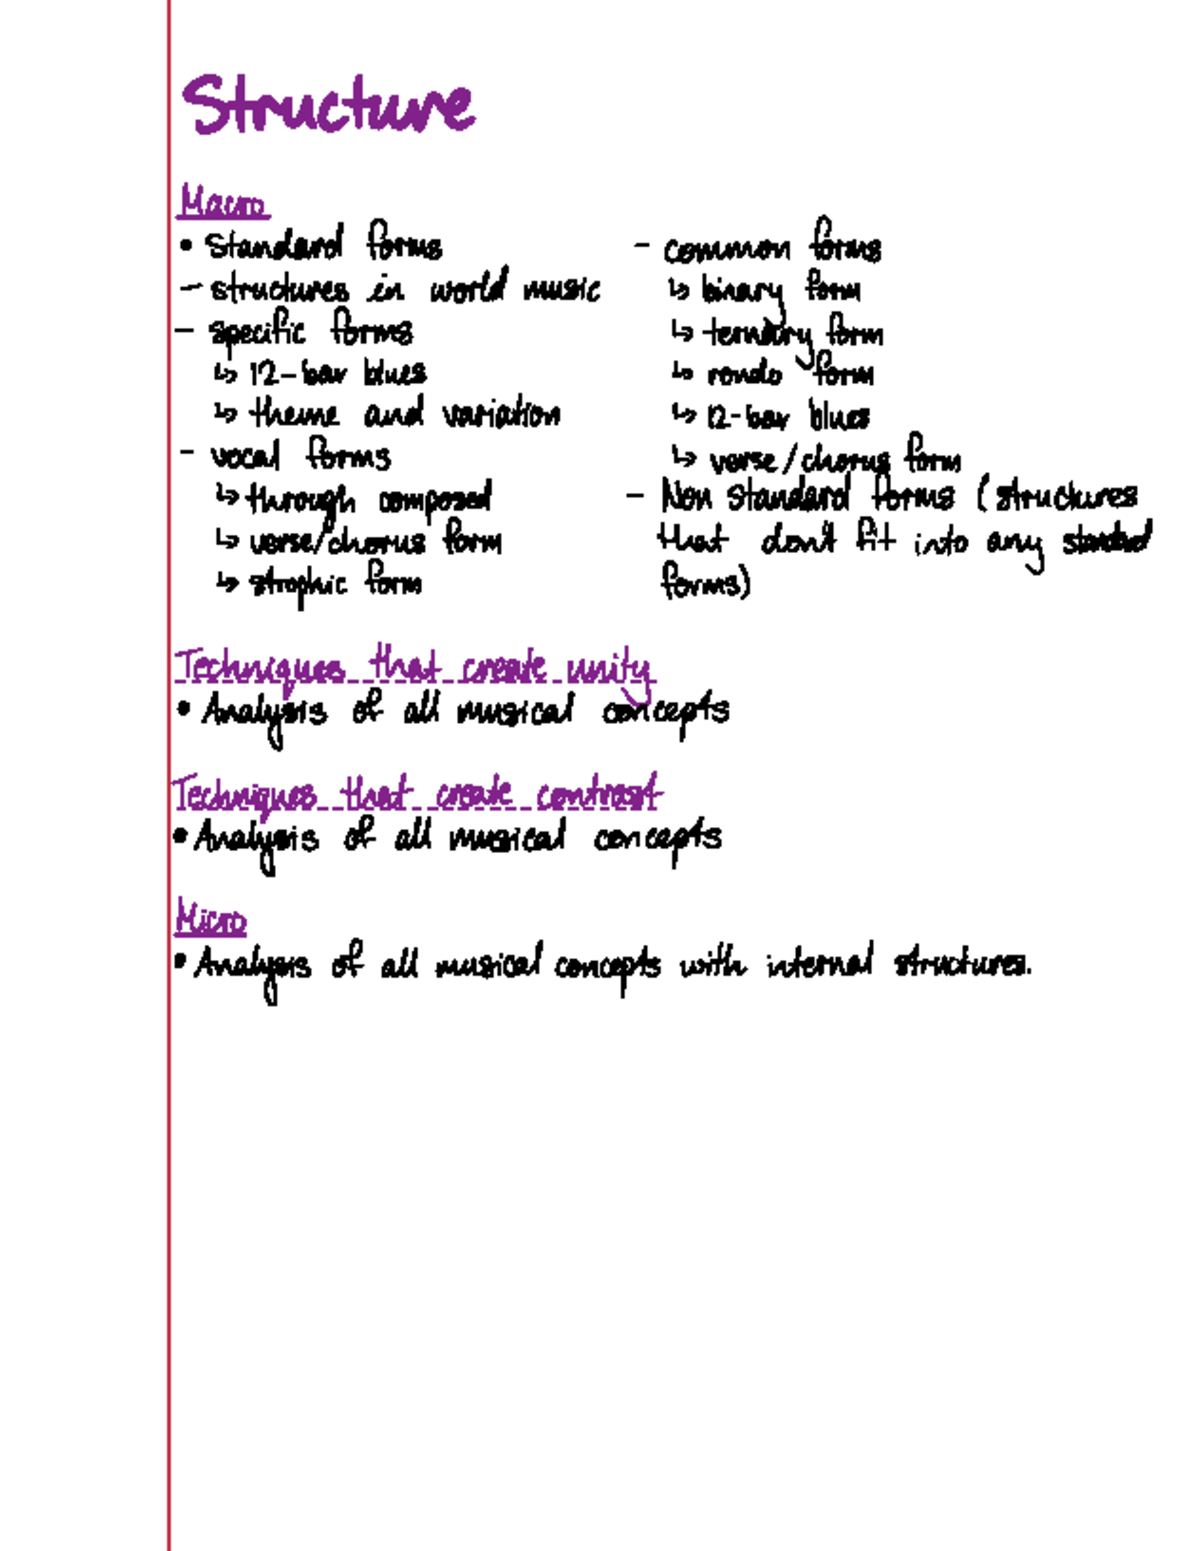 Structure
Macro
• Standard forms
- structures in world music
- specific forms
↳ 12-bar blues
↳ theme and variation
- vocal forms
↳ through composed
↳ verse/chorus form
↳ strophic form
- common forms
↳ binary form
↳ ternary form
↳ rondo form
↳ 12-bar blues
↳ verse/chorus form
- Non standard forms (structures
that don't fit into any standard
forms)
Techniques that create unity
• Analysis of all musical concepts
Techniques that create contrast
• Analysis of all musical concepts
Micro
• Analysis of all musical concepts with internal structures.